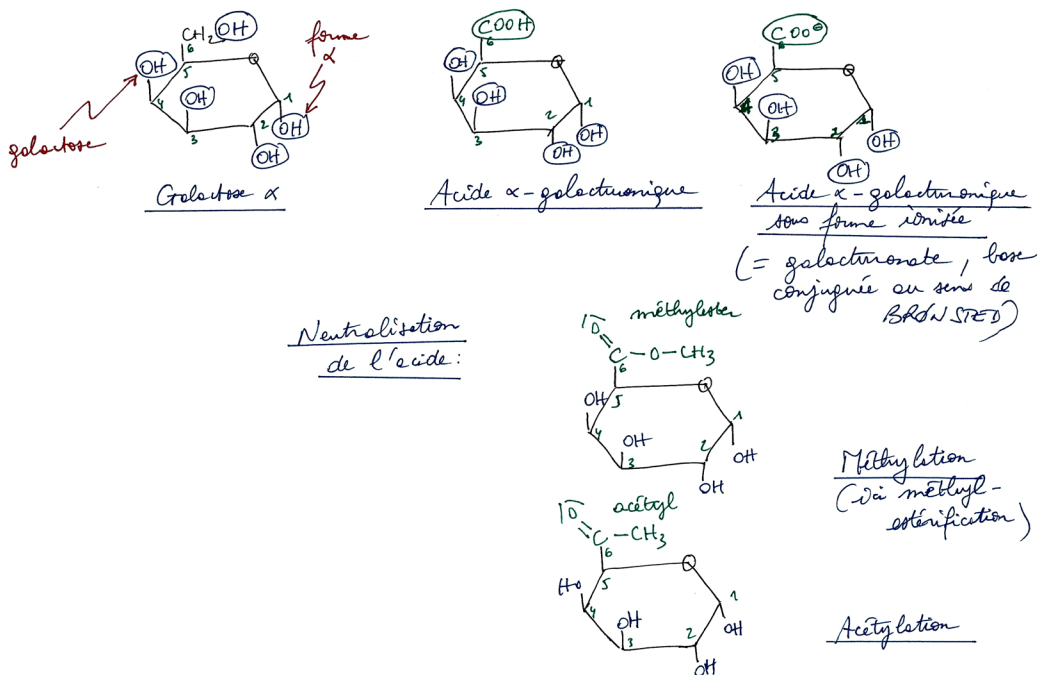 CH₂OH
6
OH
5
OH
4
1
2
OH
3
OH
galactose
forme
α
Galactose α
COOH
6
OH
5
OH
4
1
2
OH
3
OH
Acide α-galacturonique
COO⊖
6
OH
5
4
OH
3
2
1
OH
OH
Acide α-galacturonique
sous forme ionisée
(= galacturonate, base
conjuguée au sens de
BRØNSTED)
Neutralisation
de l'acide :
méthylester
O
C-O-CH₃
6
5
OH
4
OH
3
2
1
OH
OH
Méthylation
(via méthyl-
estérification)
acétyl
O
C-CH₃
6
5
HO
4
OH
3
2
1
OH
OH
Acétylation